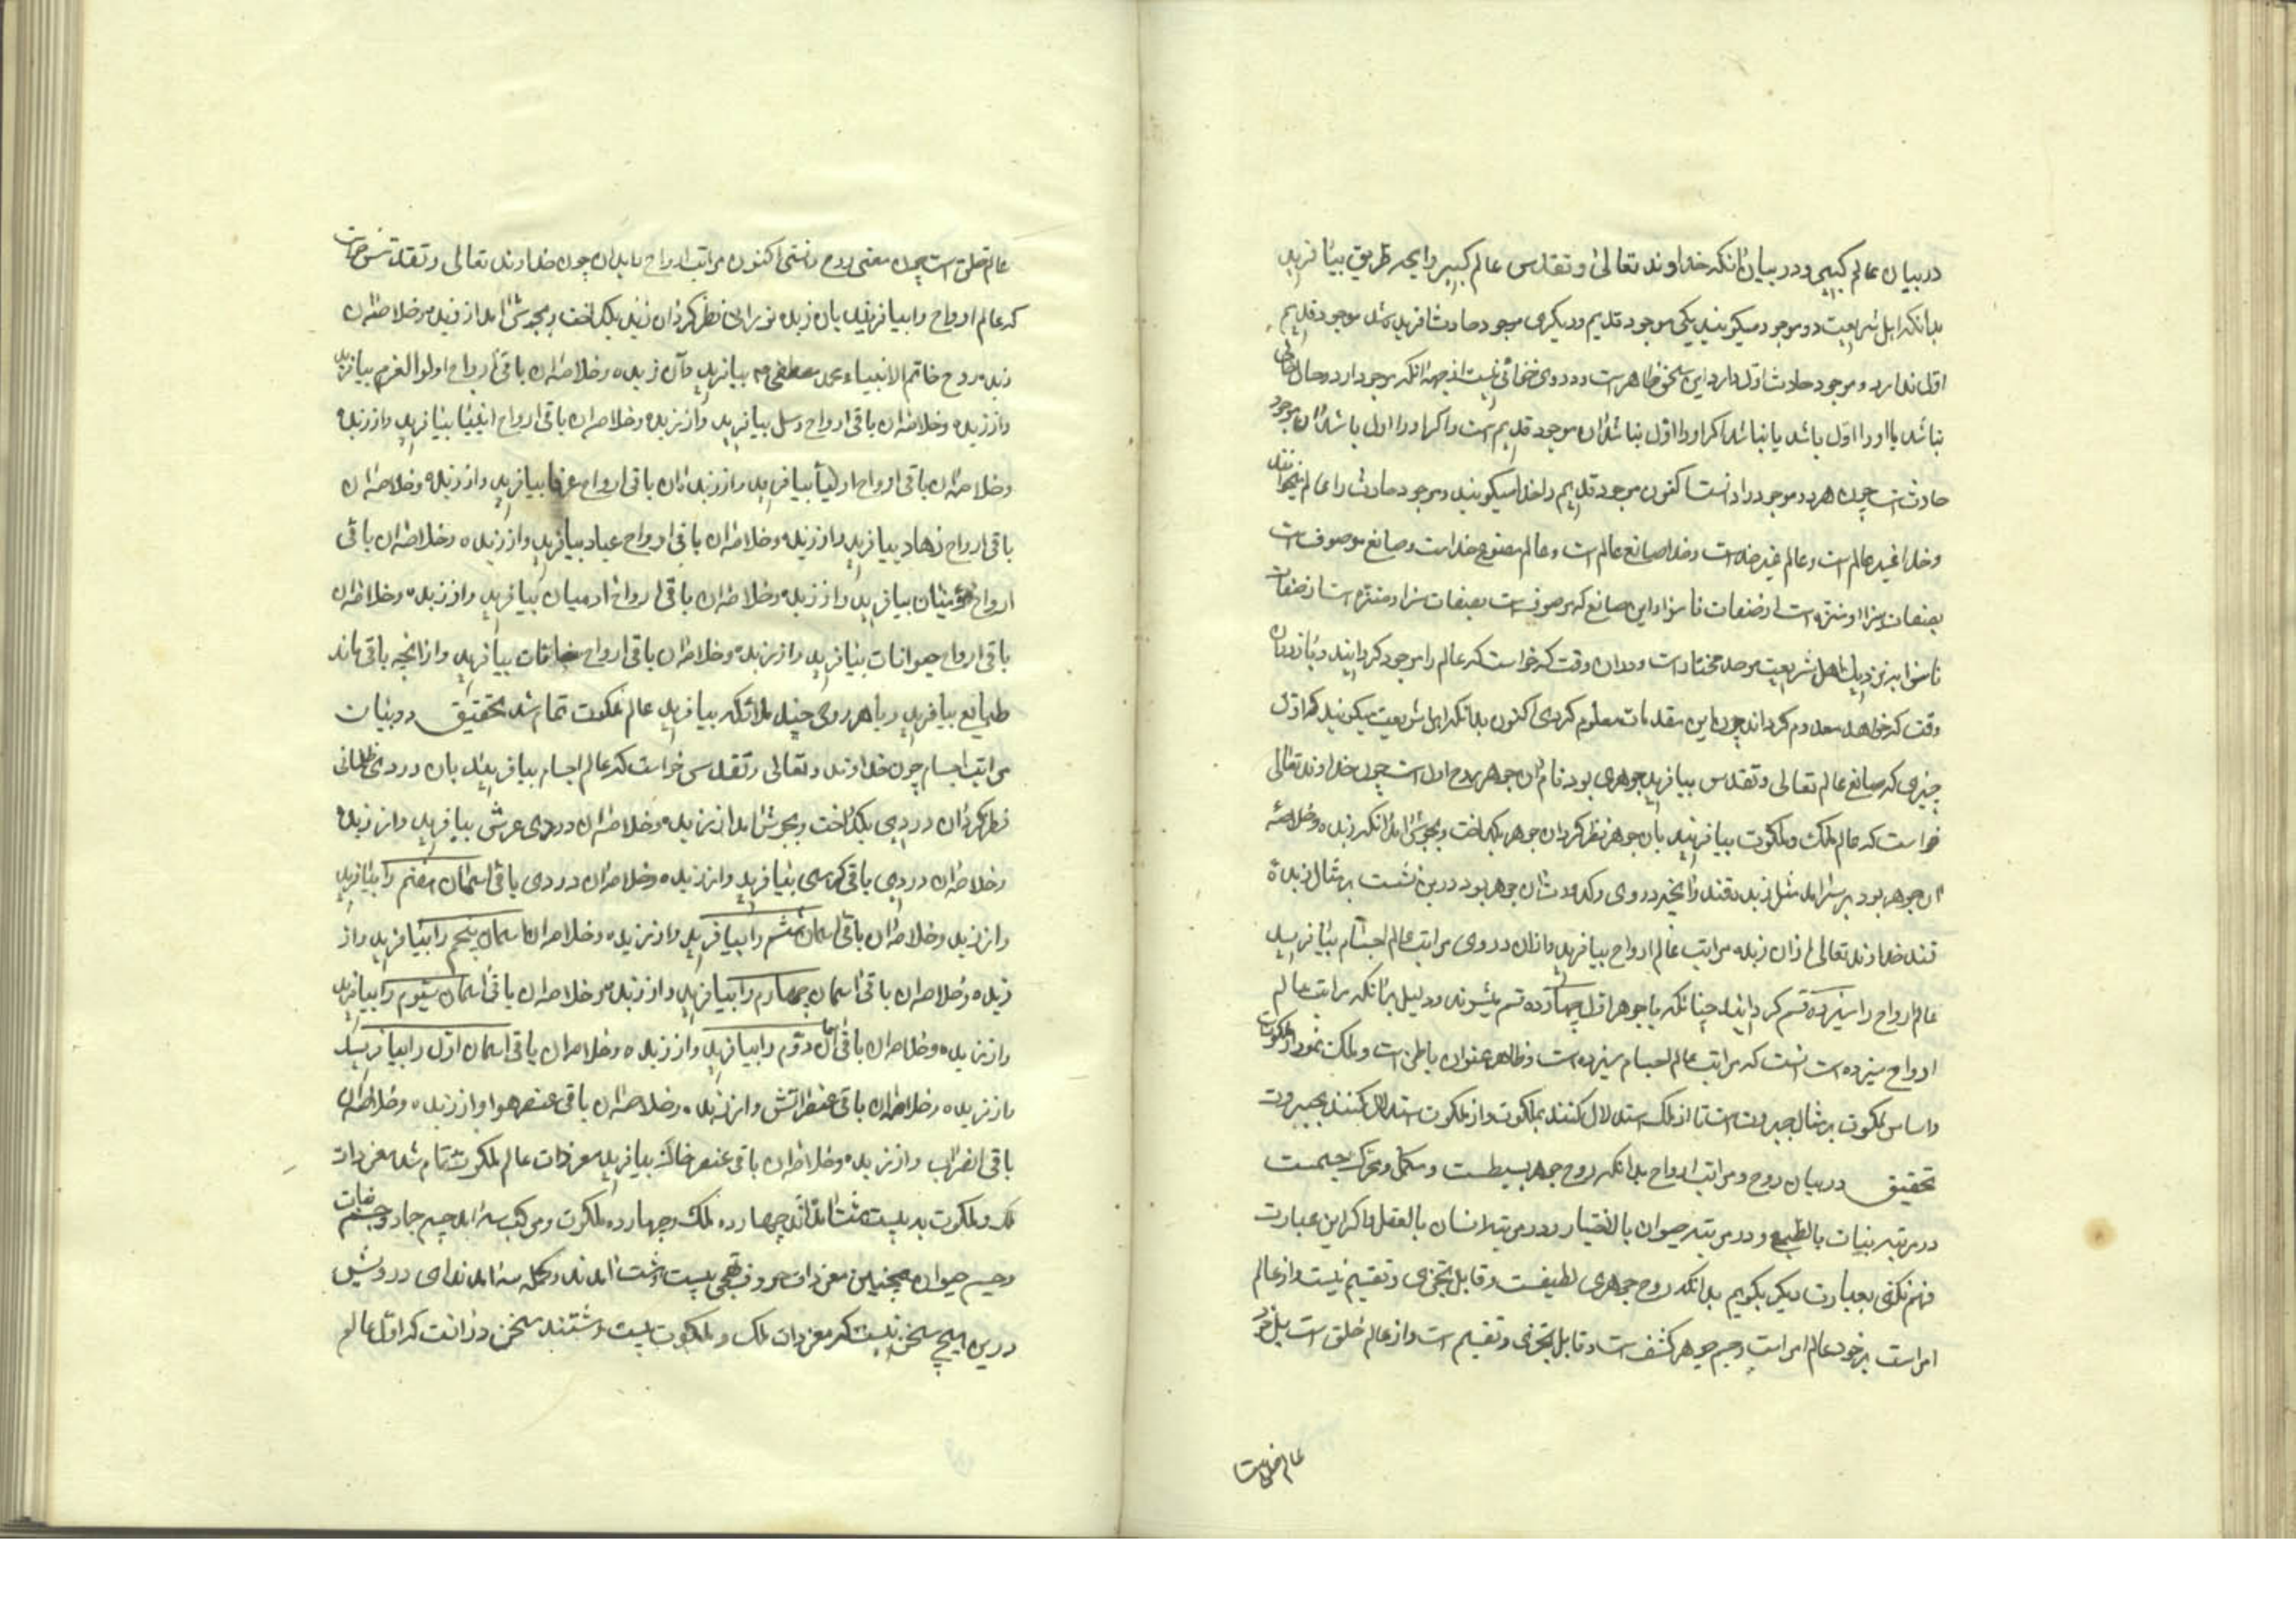 در بیان عالم کبیر و در بیان آنکه خداوند تعالی و تقدس عالم کبیر را بچه طریق بیافرید
بدانکه اهل شریعت دو موجود میگویند یکی موجود قدیم و دیگری موجود حادث آفریده شد موجود قدیم
اول ندارد و موجود حادث اول دارد این سخن ظاهرست و درو هیچ خفائی نیست از جهة آنکه موجود از دو حال خالی
نباشد یا او را اول باشد یا نباشد اکر او را اول نباشد آن موجود قدیم است و اکر او را اول باشد آن موجود
حادث است چون هر دو موجود را دانستی اکنون موجود قدیم را خدا میکویند و موجود حادث را عالم میخوانند
و خدا غیر عالم است و عالم غیر خداست و خدا صانع عالم است و عالم مصنوع خداست و صانع موصوف است
بصفات سزا و منزه است از صفات ناسزا و این صانع که موصوفست بصفات سزا و منزه است از صفات
ناسزا بنزدیک اهل شریعت مختارست و در آن وقت که خواست که عالم را موجود کردانید و باز در آن
وقت که خواهد معدوم کرداند چون این مقدمات معلوم کردی اکنون بدانکه اهل شریعت میکویند که اول
چیزی که صانع عالم تعالی و تقدس بیافرید جوهری بود نام آن جوهر روح اول است چون خداوند تعالی
خواست که عالم ملک و ملکوت بیافریند بآن جوهر نظر کرد آن جوهر بکداخت و بجوش آمد آنکه زبده و خلاصهٔ
آن جوهر بود بر سر آمد مثل زبده قند و آنچه دردی و کدورت آن جوهر بود در بن نشست بر مثال زبدهٔ
قند خداوند تعالی از آن زبده مراتب عالم ارواح بیافرید و از آن دردی مراتب عالم اجسام بیافرید
عالم ارواح را سیزده قسم کردانید چنانکه با جوهر اول چهارده قسم میشوند و دلیل بر آنکه مراتب عالم
ارواح سیزده است آنست که مراتب عالم اجسام سیزده است و ظاهر عنوان باطن است و ملک نمودار ملکوت
و اساس ملکوت بر مثال جبروت است تا از ملک استدلال کنند بملکوت و از ملکوت استدلال کنند بجبروت
تحقیق در بیان روح و مراتب ارواح بدانکه روح جوهر بسیطست و مکمل و محرک جسمست
در مرتبه نبات بالطبع و در مرتبه حیوان بالاختیار و در مرتبه انسان بالعقل و اکر این عبارت
فهم نکنی بعبارت دیکر بکویم بدانکه روح جوهری لطیفست و قابل تجزی و تقسیم نیست و از عالم
امر است بر خود عالم امر است و جسم جوهر کثیف است و قابل تجزی و تقسیم است و از عالم خلق است بل خود
عالم خلق است
عالم خلق است چون معنی روح دانستی اکنون مراتب ارواح را بدان چون خداوند تعالی و تقدس خواست
که عالم ارواح را بیافریند بآن زبده نورانی نظر کرد آن زبده بکداخت و بجوش آمد از زبده و خلاصه آن
زبده روح خاتم الانبیاء محمد مصطفی بیافرید و از آن زبده و خلاصه آن باقی ارواح اولوا العزم بیافرید
و از زبده و خلاصه آن باقی ارواح رسل بیافرید و از زبده و خلاصه آن باقی ارواح انبیا بیافرید و از زبده
و خلاصه آن باقی ارواح اولیا بیافرید و از زبده آن باقی ارواح عرفا بیافرید و از زبده و خلاصه آن
باقی ارواح زهاد بیافرید و از زبده و خلاصه آن باقی ارواح عباد بیافرید و از زبده و خلاصه آن باقی
ارواح مؤمنان بیافرید و از زبده و خلاصه آن باقی ارواح آدمیان بیافرید و از زبده و خلاصه آن
باقی ارواح حیوانات بیافرید و از زبده و خلاصه آن باقی ارواح نباتات بیافرید و از آنچه باقی ماند
طبایع بیافرید و با هر روحی چند ملائکه بیافرید عالم ملکوت تمام شد تحقیق در بیان
مراتب اجسام چون خداوند تعالی و تقدس خواست که عالم اجسام بیافریند بآن دردی ظلمانی
نظر کرد آن دردی بکداخت و بجوش آمد از زبده و خلاصه آن دردی عرش بیافرید و از زبده
و خلاصه آن دردی باقی کرسی بیافرید و از زبده و خلاصه آن دردی باقی آسمان هفتم را بیافرید
و از زبده و خلاصه آن باقی آسمان ششم را بیافرید و از زبده و خلاصه آن آسمان پنجم را بیافرید و از
زبده و خلاصه آن باقی آسمان چهارم را بیافرید و از زبده و خلاصه آن باقی آسمان سیوم را بیافرید
و از زبده و خلاصه آن باقی آسمان دوم را بیافرید و از زبده و خلاصه آن باقی آسمان اول را بیافرید
و از زبده و خلاصه آن باقی عنصر آتش و از زبده و خلاصه آن باقی عنصر هوا و از زبده و خلاصه آن
باقی عنصر آب و از زبده و خلاصه آن باقی عنصر خاک بیافرید مفردات عالم ملکوت تمام شد مفردات
ملک و ملکوت بیست و هشت آمد چهارده ملک و چهارده ملکوت و مرکب سه آمد جسم جماد و جسم نبات
و جسم حیوان همچنین مفردات حروف تهجی بیست و هشت آمدند و کلمه سه آمدند ای درویش
درین هیچ سخن نیست که مفردات ملک و ملکوت بیست و هشتند سخن در آنست که اول عالم